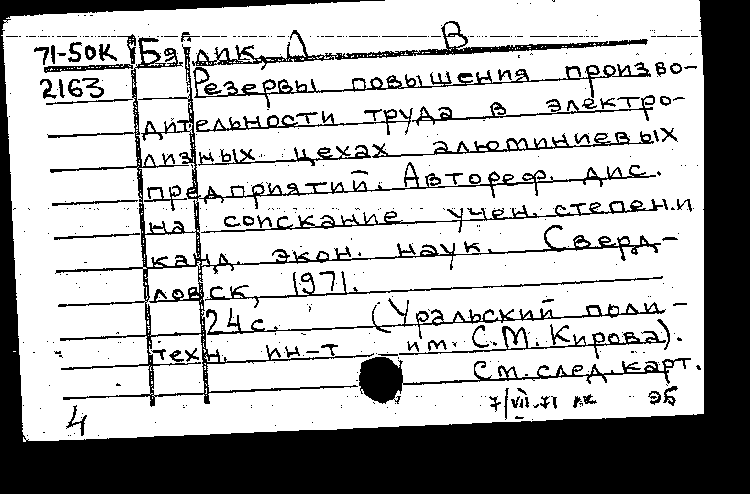 71-50К Бялик, Л В
2163 Резервы повышения произво-
дительности труда в электро-
лизных цехах алюминиевых
предприятий. Автореф. дис.
на соискание учен. степени
канд. экон. наук. Сверд-
ловск, 1971.
24 с. (Уральский поли-
техн. ин-т им. С.М. Кирова).
См. след. карт.
4 7/VII.71 лк ЭБ